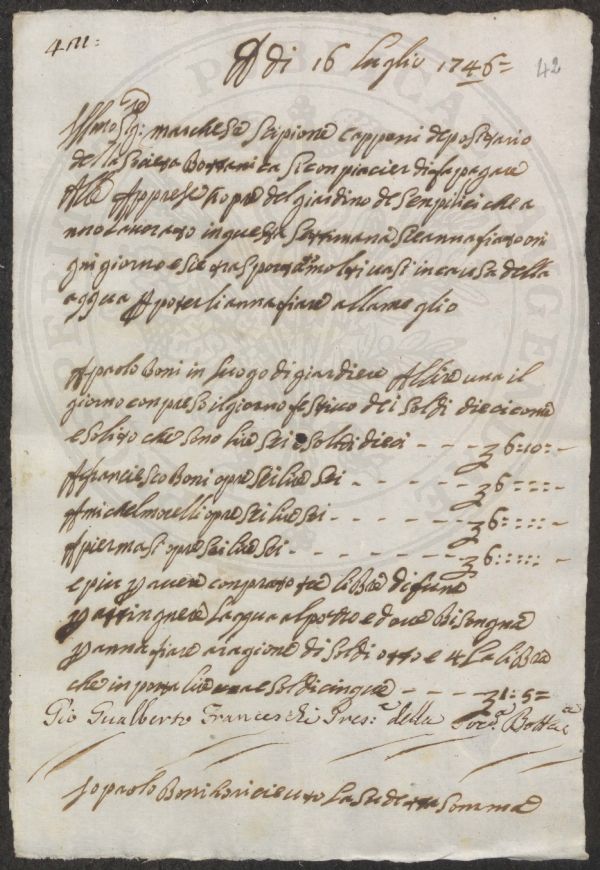 A di 16 luglio 1746=
42
Marchese Scipione Capponi depositario
della Societa Bottanica si conpiacier di fa pagare
Alle Apprese opre del giardino de Senplici che a
nno lavorato in questa settimana si e annafiato o
gni giorno e si e trasportati molti vasi in causa della
acqua P poter li annafiare alla meglio
A paolo Boni in luogo di giardiere Allire una il
giorno conpreso il giorno festivo dei Soldi dieci come
e solito che sono lire sei e soldi dieci - - - 6:10: -
A franciesco Boni opre sei lire sei - - - - - 6 :::: -
A michel morelli opre sei lire sei - - - - - 6::::: -
A pier masi opre sei lire sei - - - - - - 6::::: -
e piu P avere conprato tre libre di fune
P attingnere l'acqua al pozzo e dove Bisongna
P annafiare a ragione di soldi otto e 4 La libra
che inporta lire una e soldi cinque - - - 1: 5=
Gio Gualberto Franceschi Pres.e della Soc.a Bott.ca
Io paolo Boni ho ricieuto la sudetta Somma